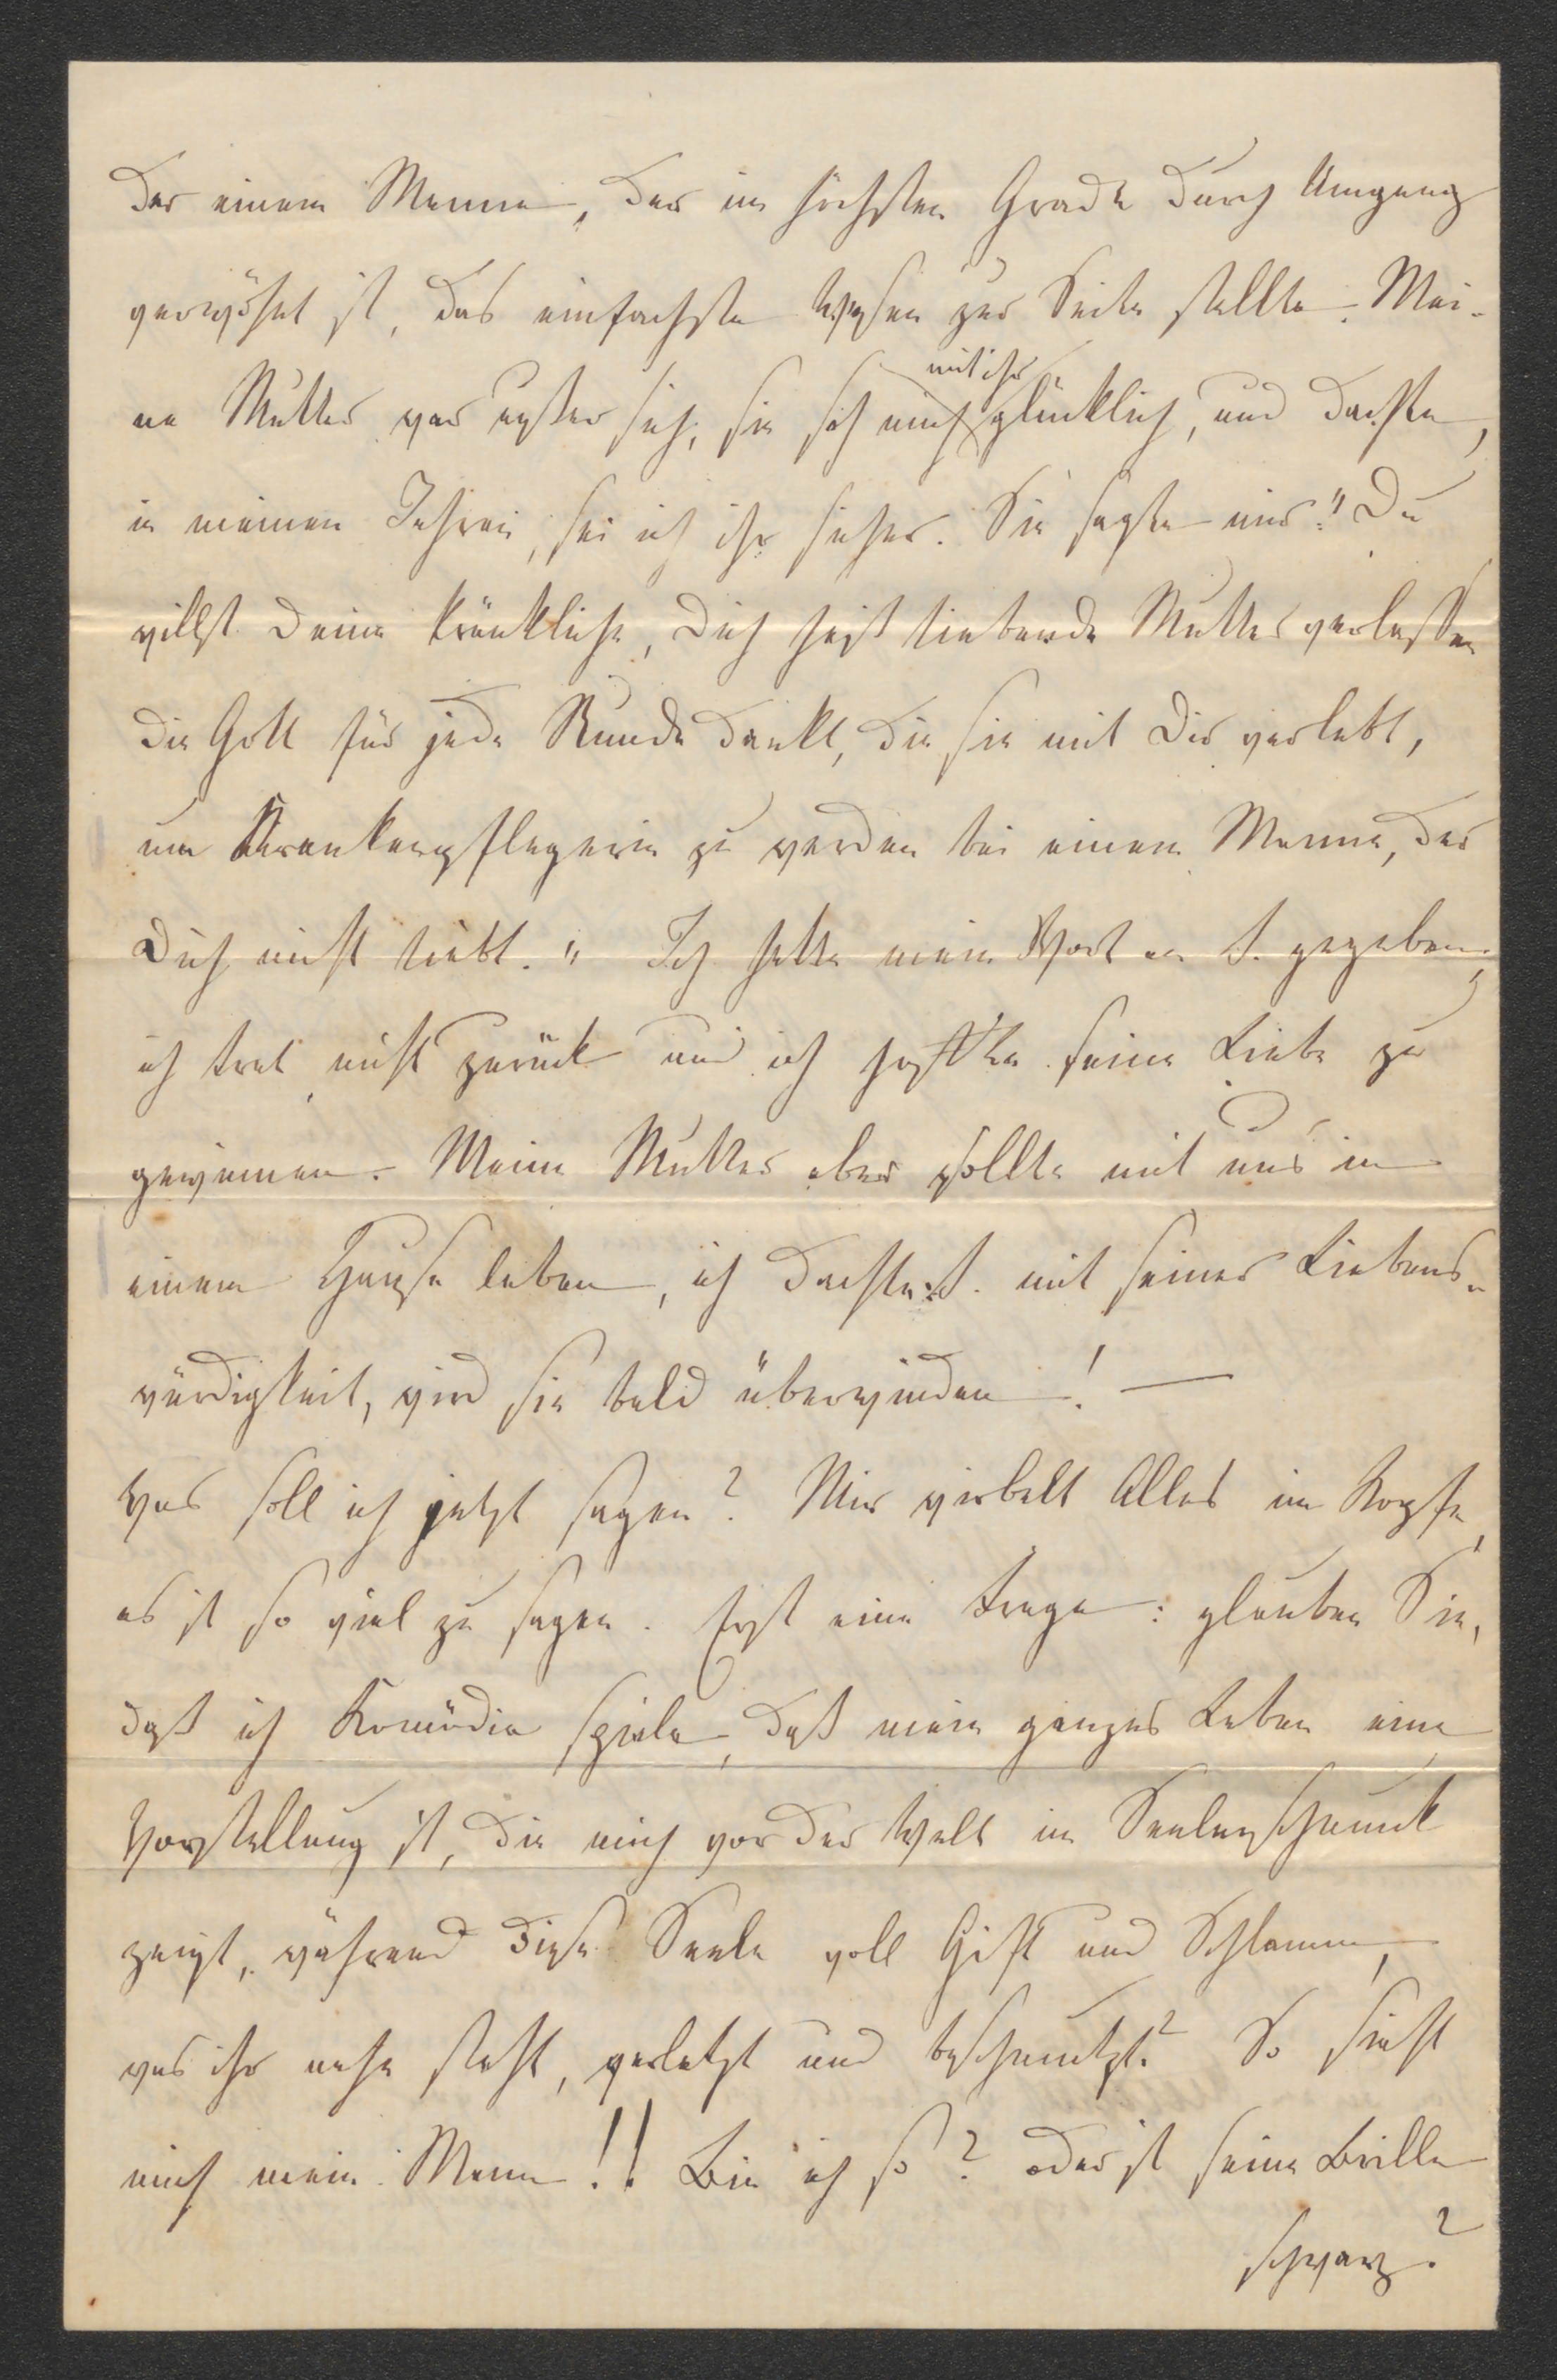 der einem Manne, der im höchsten Grade durch Umgang
verwöhnt ist, das einfachste Wesen zur Seite stellte. Mei-
ne Mutter war außer sich, sie sah mich mit ihr glücklich, und dachte,
in meinen Jahren, sei ich ihr sicher. Sie sagte mir: "Du
willst Deine kränkliche, Dich heiß liebende Mutter verlassen
die Gott für jede Stunde dankt, die sie mit Dir verlebt,
um Krankenpflegerin zu werden bei einem Manne, der
Dich nicht liebt." Ich hatte mein Wort an S. gegeben,
ich trat nicht zurück und ich hoffte seine Liebe zu
gewinnen. Meine Mutter aber sollte mit uns in
einem Hause leben, ich dachte: S. mit seiner Liebens-
würdigkeit, wird sie bald überwinden! —
Was soll ich jetzt sagen? Mir wirbelt Alles im Kopfe,
es ist so viel zu sagen. Erst eine Frage: glauben Sie,
daß ich Komödie spiele, daß mein ganzes Leben eine
Vorstellung ist, die mich vor der Welt im Seelenschmuck
zeigt, während diese Seele voll Gift und Schlamm,
was ihr nahe steht, verletzt und beschmutzt? So sieht
mich mein Mann!! Bin ich so? oder ist seine Brille
schwarz?